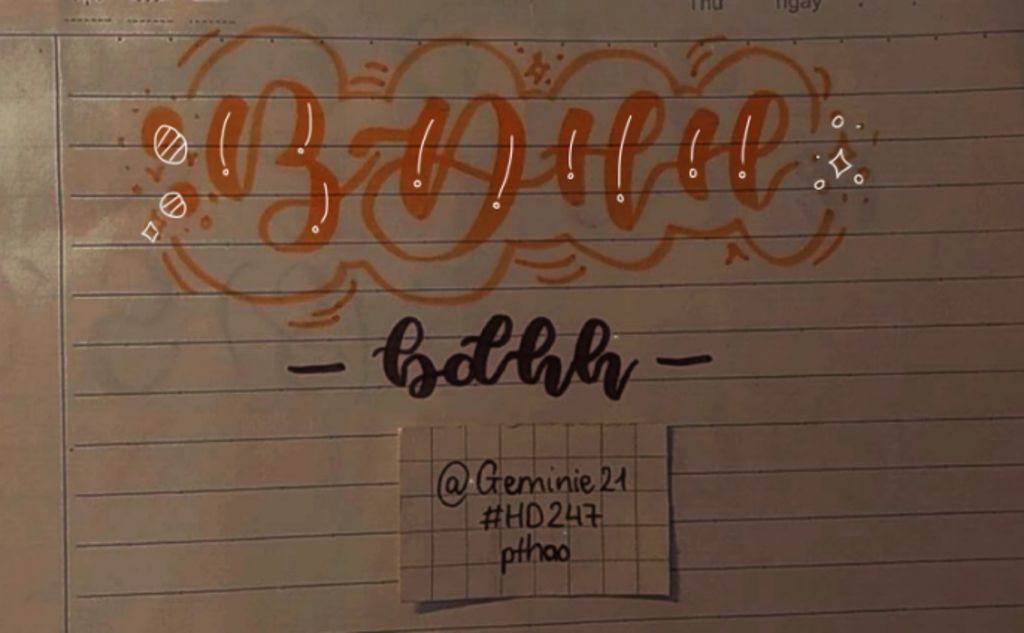 Thứ ngày
BDHH
bdhh
@Geminie21
#HD247
pthao